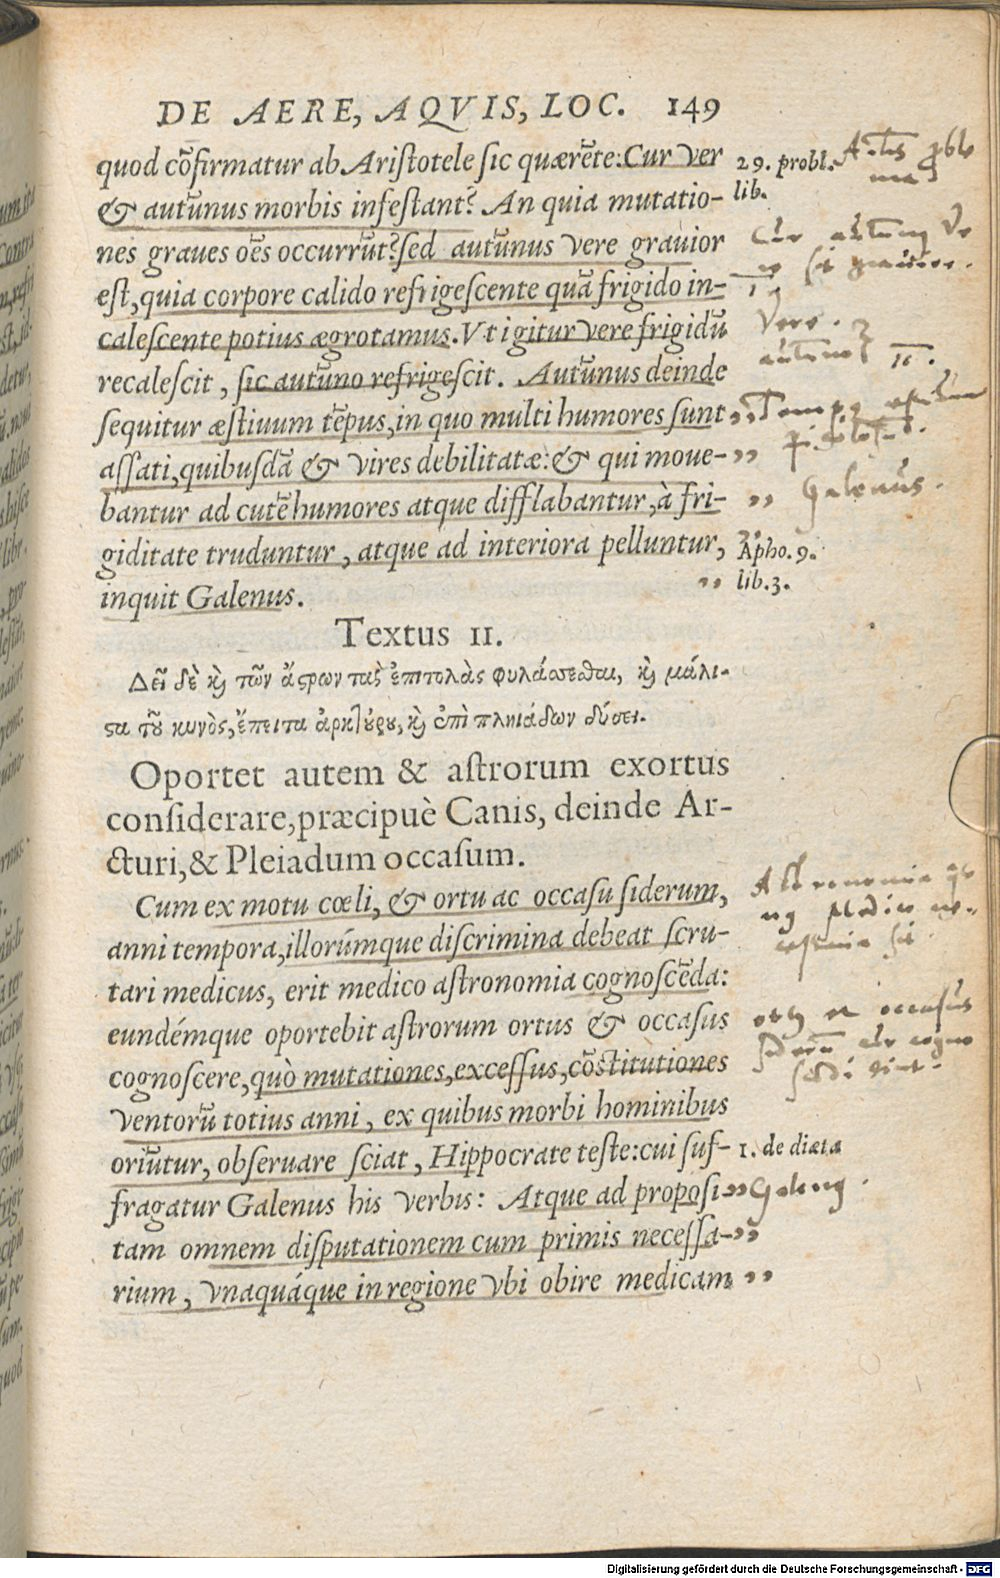 DE AERE, AQVIS, LOC. 149
quod cõfirmatur ab Aristotele sic quærẽte: Cur ver
29. probl.
lib.
& autũnus morbis infestant? An quia mutatio-
nes graues oẽs occurrũt? sed autũnus vere grauior
est, quia corpore calido refrigescente quã frigido in-
calescente potius ægrotamus. Vt igitur vere frigidũ
recalescit, sic autũno refrigescit. Autũnus deinde
sequitur æstiuum tẽpus, in quo multi humores sunt „
assati, quibusdã & vires debilitatæ: & qui moue- „
bantur ad cutẽ humores atque difflabantur, à fri- „
Galenus.
giditate truduntur, atque ad interiora pelluntur, „
Apho. 9.
lib. 3.
inquit Galenus. „
Textus II.
Δεῖ δὲ ϗ τῶν ἄϛρων τὰς ἐπιτολὰς φυλάσσεσθαι, ϗ μάλι-
ϛα τοῦ κυνὸς, ἔπειτα ἀρκτούρου, ϗ ἐπὶ πληιάδων δύσει.
Oportet autem & astrorum exortus
considerare, præcipuè Canis, deinde Ar-
cturi, & Pleiadum occasum.
Cum ex motu cœli, & ortu ac occasu siderum,
anni tempora, illorúmque discrimina debeat scru-
tari medicus, erit medico astronomia cognoscẽda:
eundémque oportebit astrorum ortus & occasus
cognoscere, quò mutationes, excessus, cõstitutiones
ventorũ totius anni, ex quibus morbi hominibus
oriũtur, obseruare sciat, Hippocrate teste: cui suf-
1. de diæta
fragatur Galenus his verbis: Atque ad proposi „
tam omnem disputationem cum primis necessa- „
rium, vnaquáque in regione vbi obire medicam „
Digitalisierung gefördert durch die Deutsche Forschungsgemeinschaft - DFG